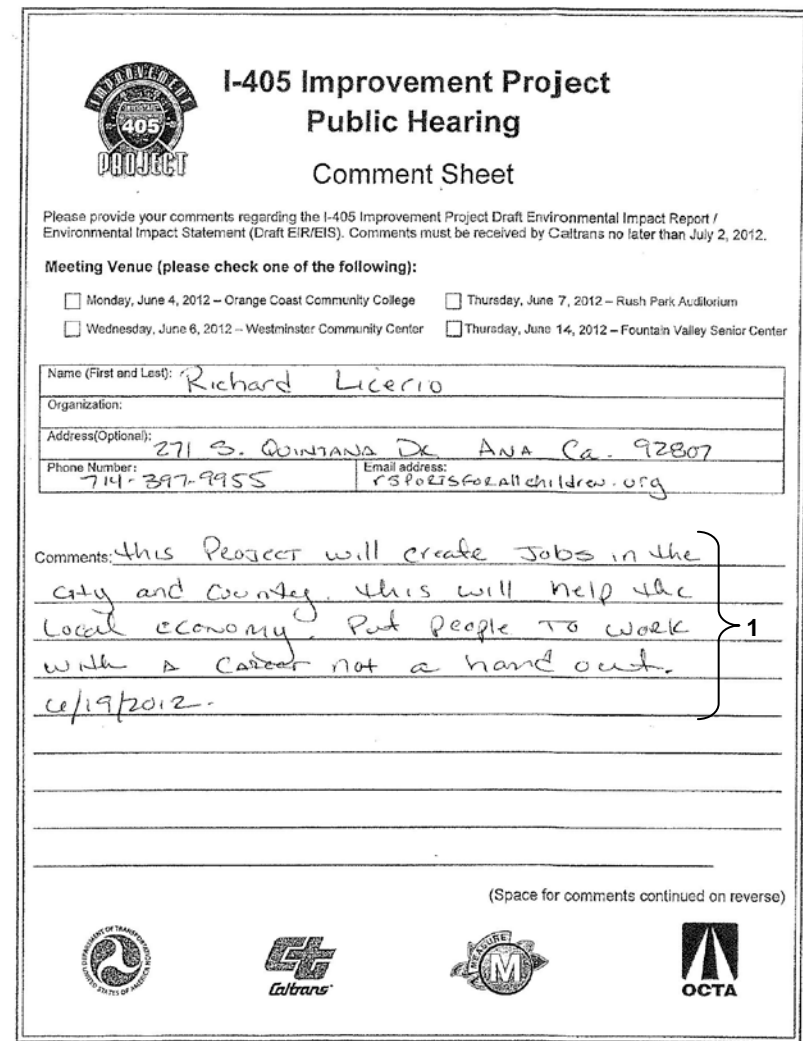 IMPROVEMENT
INTERSTATE
405
PROJECT
I-405 Improvement Project
Public Hearing
Comment Sheet
Please provide your comments regarding the I-405 Improvement Project Draft Environmental Impact Report /
Environmental Impact Statement (Draft EIR/EIS). Comments must be received by Caltrans no later than July 2, 2012.
Meeting Venue (please check one of the following):
Monday, June 4, 2012 – Orange Coast Community College
Thursday, June 7, 2012 – Rush Park Auditorium
Wednesday, June 6, 2012 – Westminster Community Center
Thursday, June 14, 2012 – Fountain Valley Senior Center
Name (First and Last): Richard Licerio
Organization:
Address(Optional): 271 S. QUINTANA DR ANA Ca. 92807
Phone Number: 714-397-9955
Email address: rsportsforallchildren.org
Comments: this Project will create Jobs in the
City and County. this will help the
Local economy. Put People To work
with a career not a hand out.
6/19/2012.
1
(Space for comments continued on reverse)
DEPARTMENT OF TRANSPORTATION
UNITED STATES OF AMERICA
Caltrans
MEASURE
M
OCTA